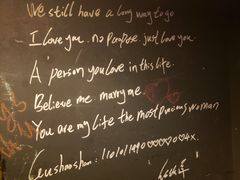 We still have a long way to go
I love you. no purpose. just love you.
A person you love in this life.
Believe me. marry me.
You are my life the most precious woman